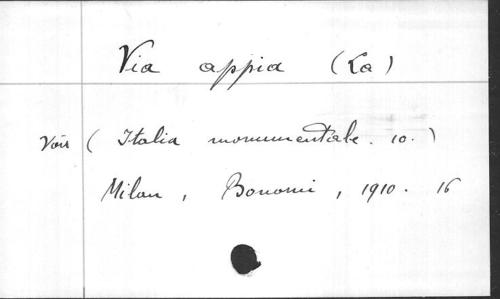 Via appia (La)
Voir (Italia monumentale. 10.)
Milan, Bonomi, 1910. 16